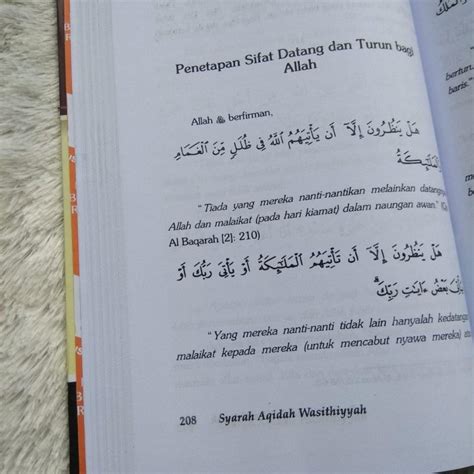 Penetapan Sifat Datang dan Turun bagi
Allah
Allah ﷻ berfirman,
هَلْ يَنظُرُونَ إِلَّآ أَن يَأْتِيَهُمُ ٱللَّهُ فِى ظُلَلٍ مِّنَ ٱلْغَمَامِ
وَٱلْمَلَٰٓئِكَةُ
“Tiada yang mereka nanti-nantikan melainkan datangnya
Allah dan malaikat (pada hari kiamat) dalam naungan awan.”
Al Baqarah [2]: 210)
هَلْ يَنظُرُونَ إِلَّآ أَن تَأْتِيَهُمُ ٱلْمَلَٰٓئِكَةُ أَوْ يَأْتِىَ رَبُّكَ أَوْ
بَعْضُ ءَايَٰتِ رَبِّكَ ۗ
“Yang mereka nanti-nanti tidak lain hanyalah
malaikat kepada mereka (untuk mencabut nyawa mereka)
208 Syarah Aqidah Wasithiyyah
baris.”